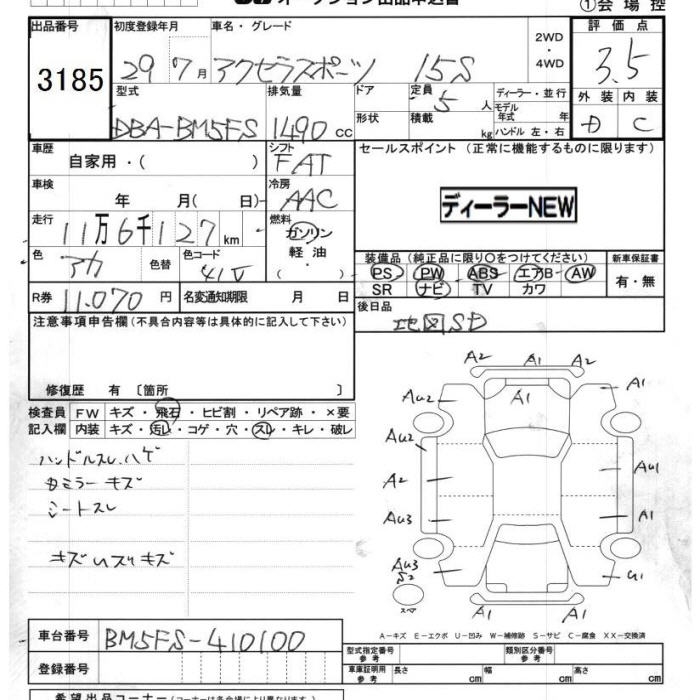 オークション出品申込書
①会場控
出品番号 初度登録年月 車名・グレード 2WD・4WD 評価点
3185 29年7月 アクセラスポーツ 15S 3.5
型式 排気量 ドア 定員 5人 ディーラー・並行 外装 内装
DBA-BM5FS 1490cc 形状 積載 kg モデル年式 年 ハンドル 左・右 D C
車歴 自家用・( ) シフト FAT セールスポイント (正常に機能するものに限ります)
車検 年 月(日) 冷房 AAC
ディーラーNEW
走行 11万6千127km 燃料 ガソリン 軽油 ( )
色 アカ 色替 色コード 41V
装備品 (純正品に限り○をつけてください) 新車保証書
PS PW ABS エアB AW 有・無
SR ナビ TV カワ
R券 11.070円 名変通知期限 月 日 後日品
地図SD
注意事項申告欄(不具合内容等は具体的に記入して下さい)
修復歴 有 〔箇所 〕
検査員 FW キズ・飛石・ヒビ割・リペア跡・×要
記入欄 内装 キズ・汚レ・コゲ・穴・スレ・キレ・破レ
ハンドルスレ、ハゲ
カミラーキズ
シートスレ
A2 A1 A2
AU2 A1 A1
AU2
A2 AU1
AU3 A1
AU3
S2 G1
スペア
A1 A1
A-キズ E-エクボ U-凹み W-補修跡 S-サビ C-腐食 XX-交換済
車台番号 BM5FS-410100
登録番号
型式指定番号 参考 類別区分番号 参考
車庫証明用 参考 長さ cm 幅 cm 高さ cm
希望出品コーナー(コーナーは各会場により異なります)